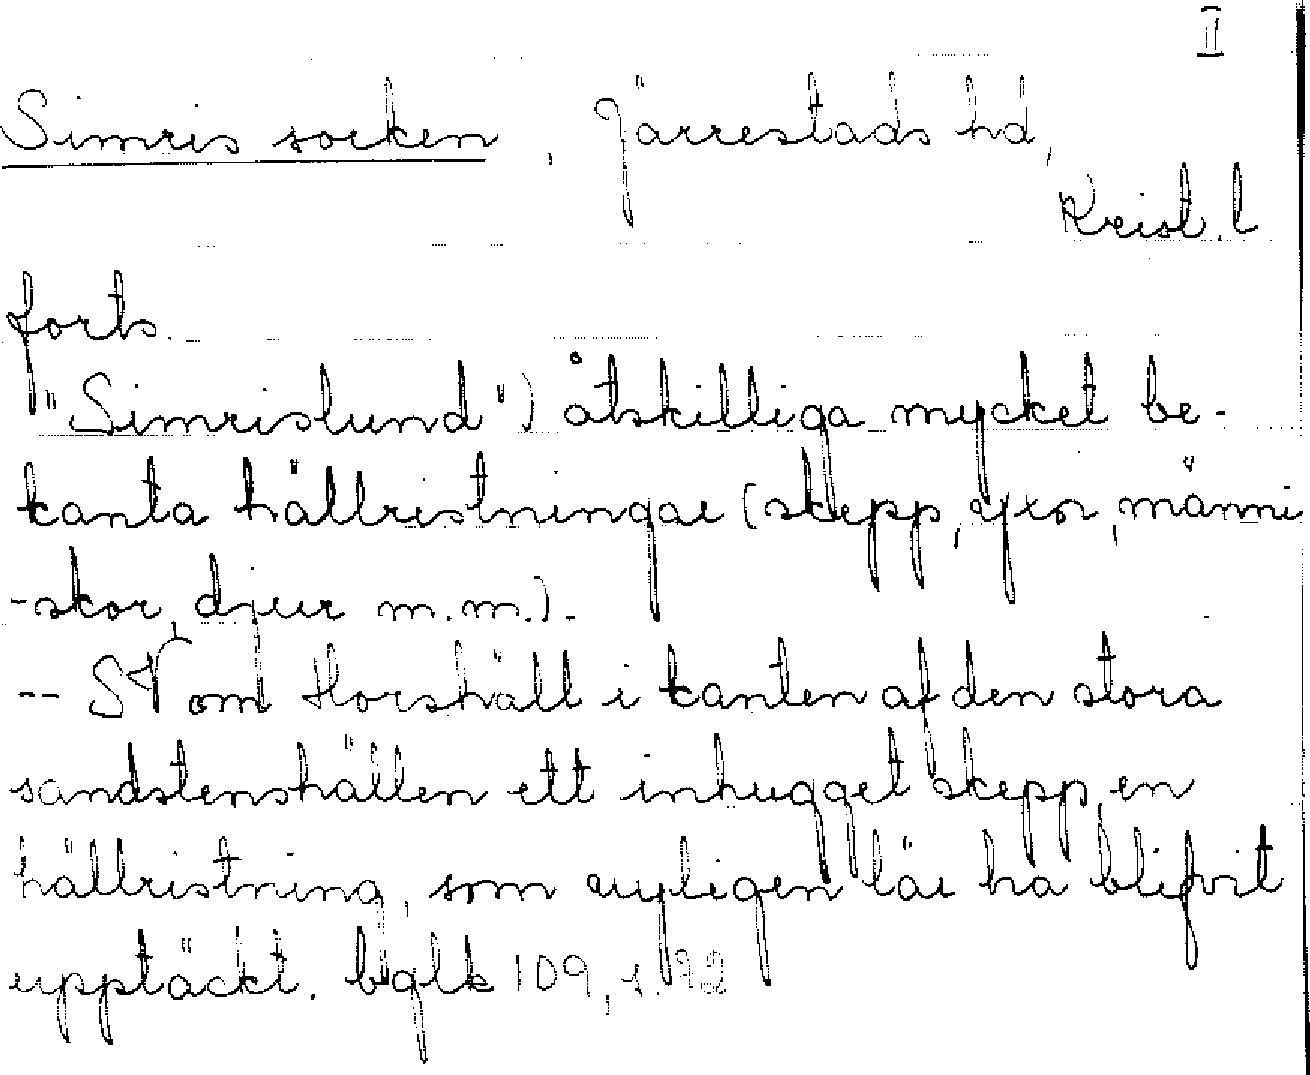 II
Simris socken, Järrestads hd,
Krist. l
forts.
"Simrislund") åtskilliga mycket be-
kanta hällristningar (skepp, yxor, männi
-skor, djur m.m.).
-- SV om Horshäll i kanten af den stora
sandstenshällen ett inhugget skepp, en
hällristning, som nyligen lär ha blifvit
upptäckt. bglk 109, s. 92